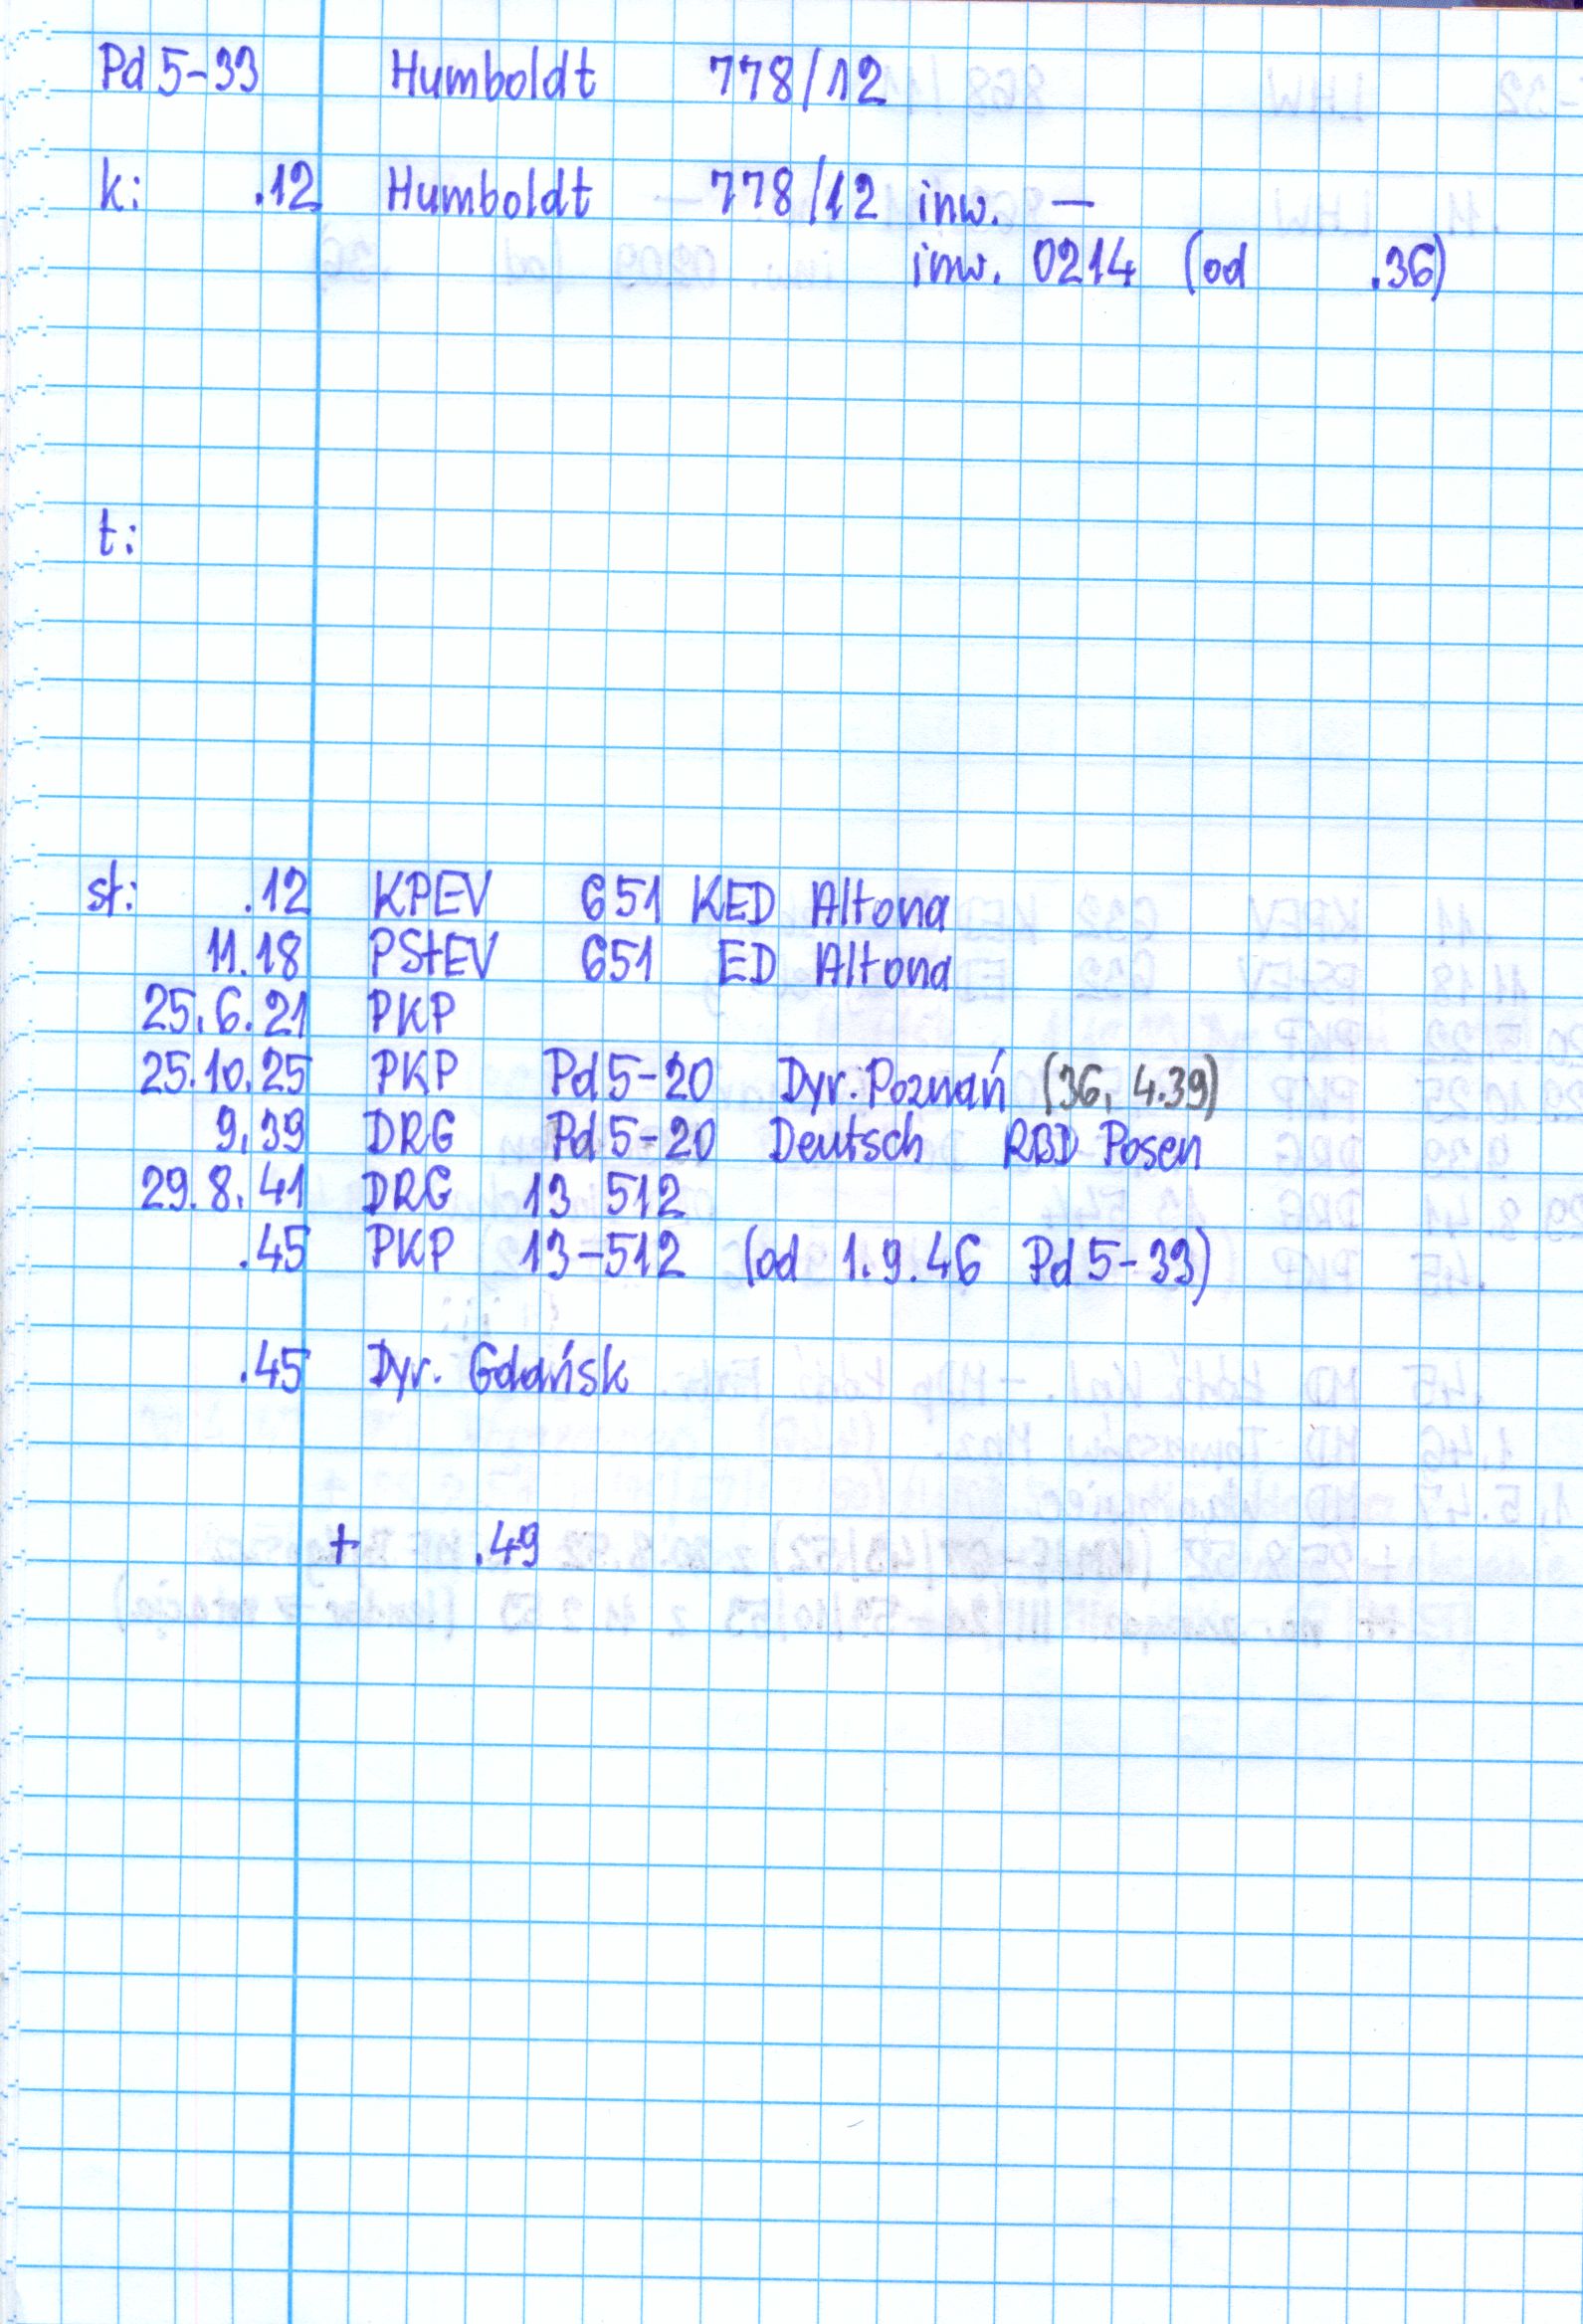 Pd 5-33 Humboldt 778/12
k: .12 Humboldt 778/12 inw. —
inw. 0214 (od .36)
t:
st: .12 KPEV 651 KED Altona
11.18 PStEV 651 ED Altona
25.6.21 PKP
25.10.25 PKP Pd 5-20 Dyr. Poznań (36, 4.39)
9.39 DRG Pd 5-20 Deutsch RBD Posen
29.8.41 DRG 13 512
.45 PKP 13-512 (od 1.9.46 Pd 5-33)
.45 Dyr. Gdańsk
+ .49